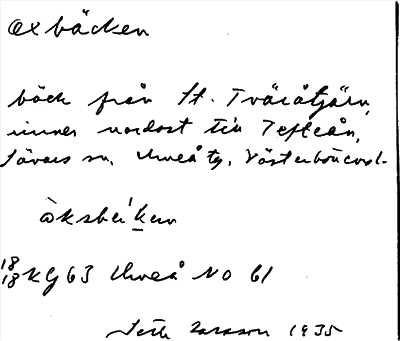 Oxbäcken
bäck från St. Tväråtjärn,
rinner nordost till Tefteån,
Sävars sn, Umeå tg, Västerbotten
òksbεken
18/18 KG 63 Umeå NO 61
Larsson 1935